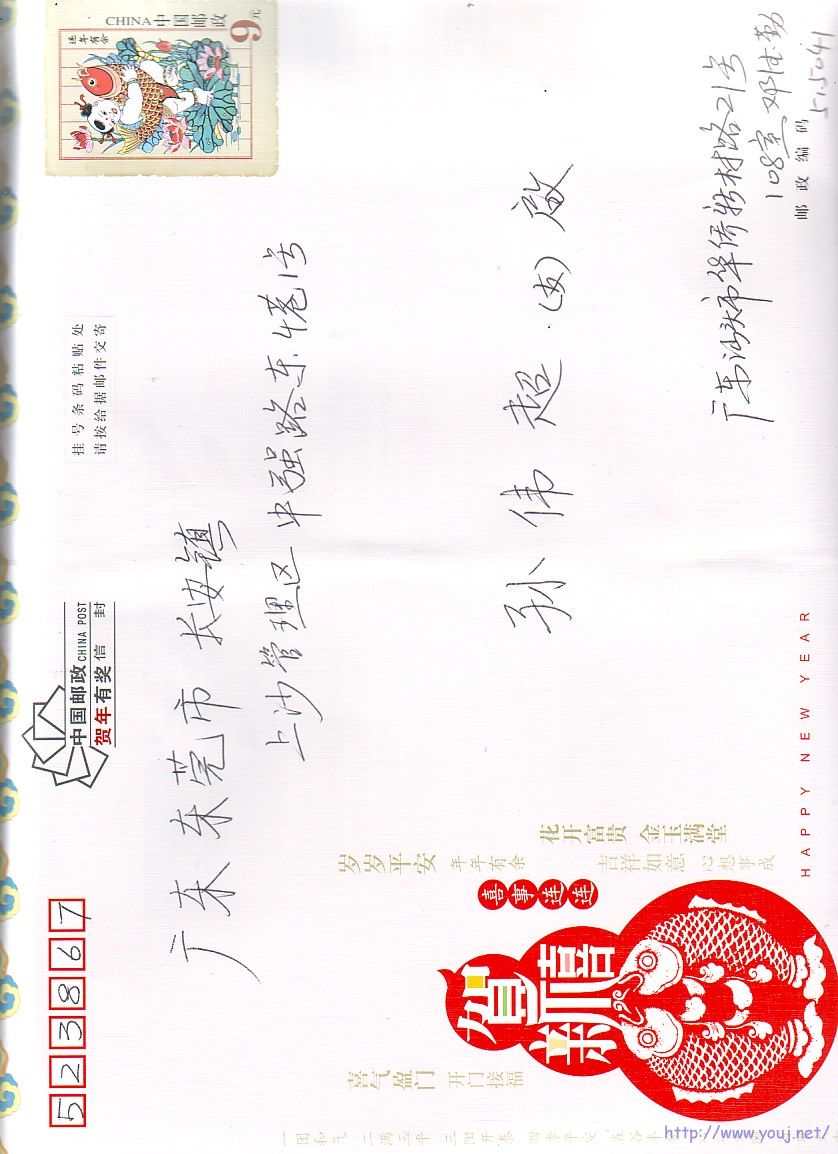 523867
中国邮政 CHINA POST
贺年有奖信封
挂号条码粘贴处
请按给据邮件交寄
CHINA 中国邮政
9元
连年有余
广东 东莞市 长安镇
上沙管理区 中强路东4巷1号
孙伟超.(女)启
广东汕头市华侨新村路21号
108室 邓
邮政编码 515041
岁岁平安 年年有余
喜气盈门 开门接福
花开富贵 金玉满堂
吉祥如意 心想事成
喜事连连
贺禧
HAPPY NEW YEAR
一团和气 二满三平 三阳开泰 四季平安 五谷丰
http://www.youj.net/